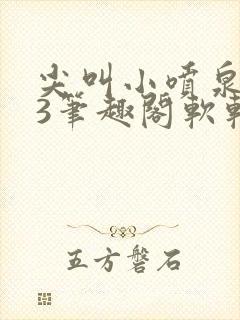 尖叫小喷泉
3笔趣阁软
五方磐石